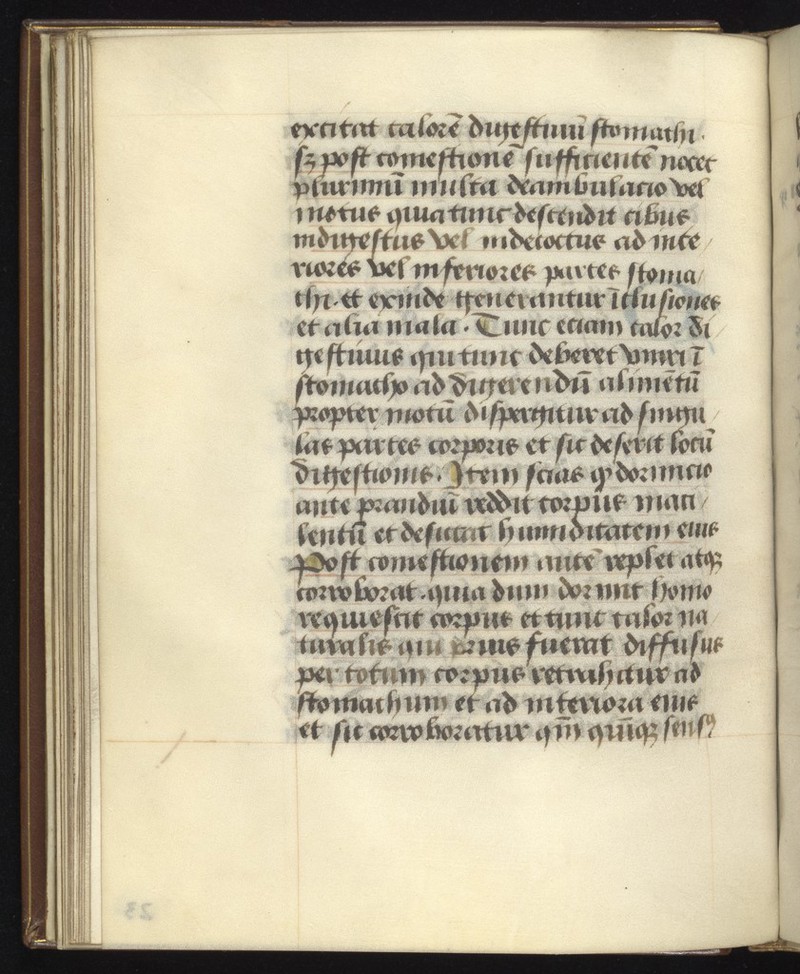 excitat calorē digestiuū stomathi.
sꝫ post comestionē sufficientē nocet
plurimū multa deambulacio vel
motus quia tunc descendit cibus
indigestus vel indecoctus ad inte/
riores vel inferiores partes stoma/
thi. et exinde generantur īclusiones
et alia mala. Tunc etiam calor di/
gestiuus qui tunc deberet vniri ī
stomacho ad digerendū alimētū
propter motū dispergitur ad singu/
las partes corporis et sic deserit locū
digestionis. Item scias ꝙ dormicio
ante prandiū reddit corpus maci/
lentū et desiccat humiditatem eius
Post comestionem autē replet atqꝫ
corroborat. quia dum dormit homo
requiescit corpus et tunc calor na/
turalis qui prius fuerat diffusus
per totum corpus retrahitur ad
stomachum et ad interiora eius
et sic corroboratur qm̄ quīqꝫ sensꝰ
23